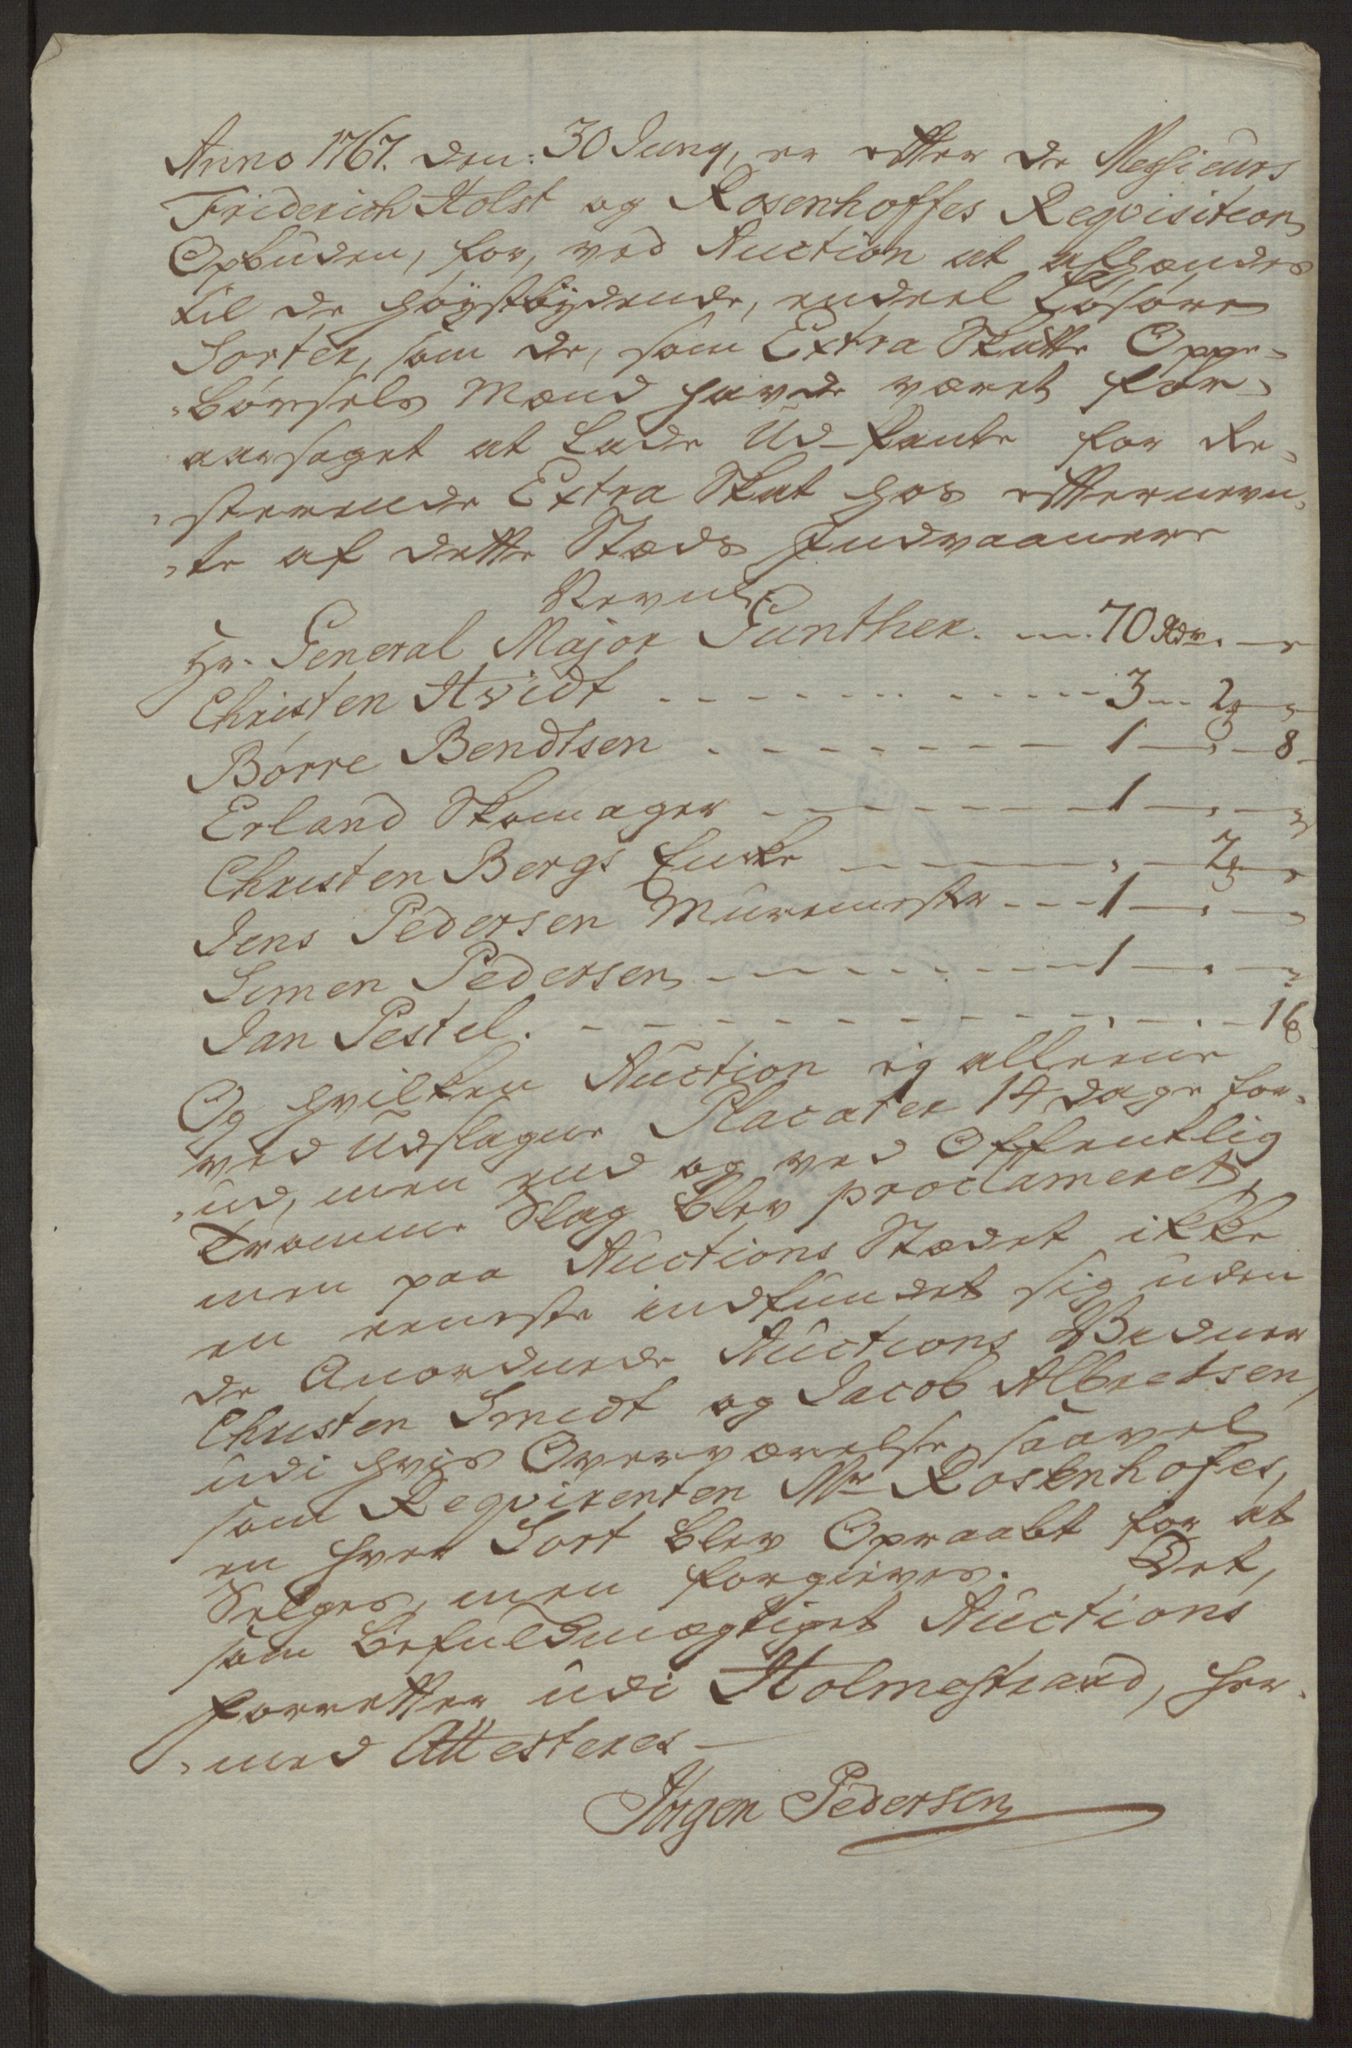 Anno 1767. den: 30 Juny, er effter de Messieurs
Friderich Holst og Rosenhoffes Reqvisition
Opbuden, for, ved Auction at afhændes
til de høystbydende, endeel Løsøre
Sorter, som de, som Extra Skatte Oppe-
-børsels Mænd havde været for-
aarsaget at Lade Ud-Pante for Re-
-sterende Extra Skat hos efternevn-
-te af dette Stæds Indvaanere
Nevnl:
Hr. General Major Gunther. --- 70 Rdr. -
Christen Hvidt - - - - - - - - - - 3 --- 2 -
Børre Bendtsen - - - - - - - - 1 - " - 8
Erland Skomager - - - - - - 1 - " - "
Christen Bergs Encke - - - - " - 2 -
Jens Pedersen Muremester - - - 1 - " - "
Simen Pedersen - - - - - - - 1 - " - "
Jan Pestel. - - - - - - - - - - - " - " - 16
Og hvilken Auction ej alleene
ved Udslagne Placater 14 dage for-
-ud, men end og ved Offentlig
Tromme Slag blev proclameret,
men paa Auctions Stædet ikke
en eeneste indfundet sig uden
de Anordnede Auctions Vidner
Christen Smidt og Jacob Albretsen,
udi hvis Overværelse, saavel
som Reqvirenten Mr Rosenhofes,
en hver Sort blev Opraabt for at
Selges, men forgieves. Det,
som befuldmægtiget Auctions
forretter udi Holmestrand, her-
-med Attesteres -
Jørgen Pedersen